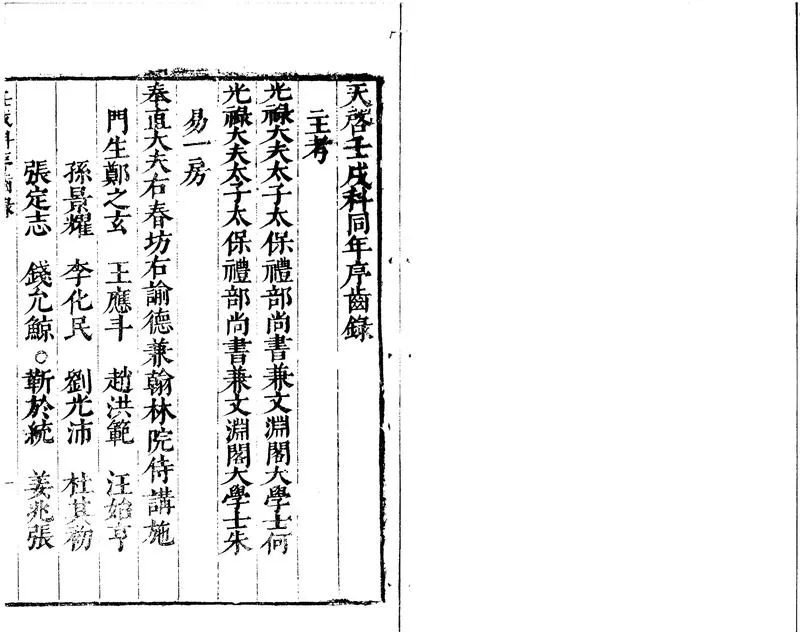 天啓壬戌科同年序齒錄
主考
光祿大夫太子太保禮部尚書兼文淵閣大學士何
光祿大夫太子太保禮部尚書兼文淵閣大學士朱
易一房
奉直大夫右春坊右諭德兼翰林院侍講施
門生鄭之玄 王應斗 趙洪範 汪始亨
孫景耀 李化民 劉光沛 杜其初
張定志 錢允鯨○靳於統 姜兆張
壬戌科序齒錄 一